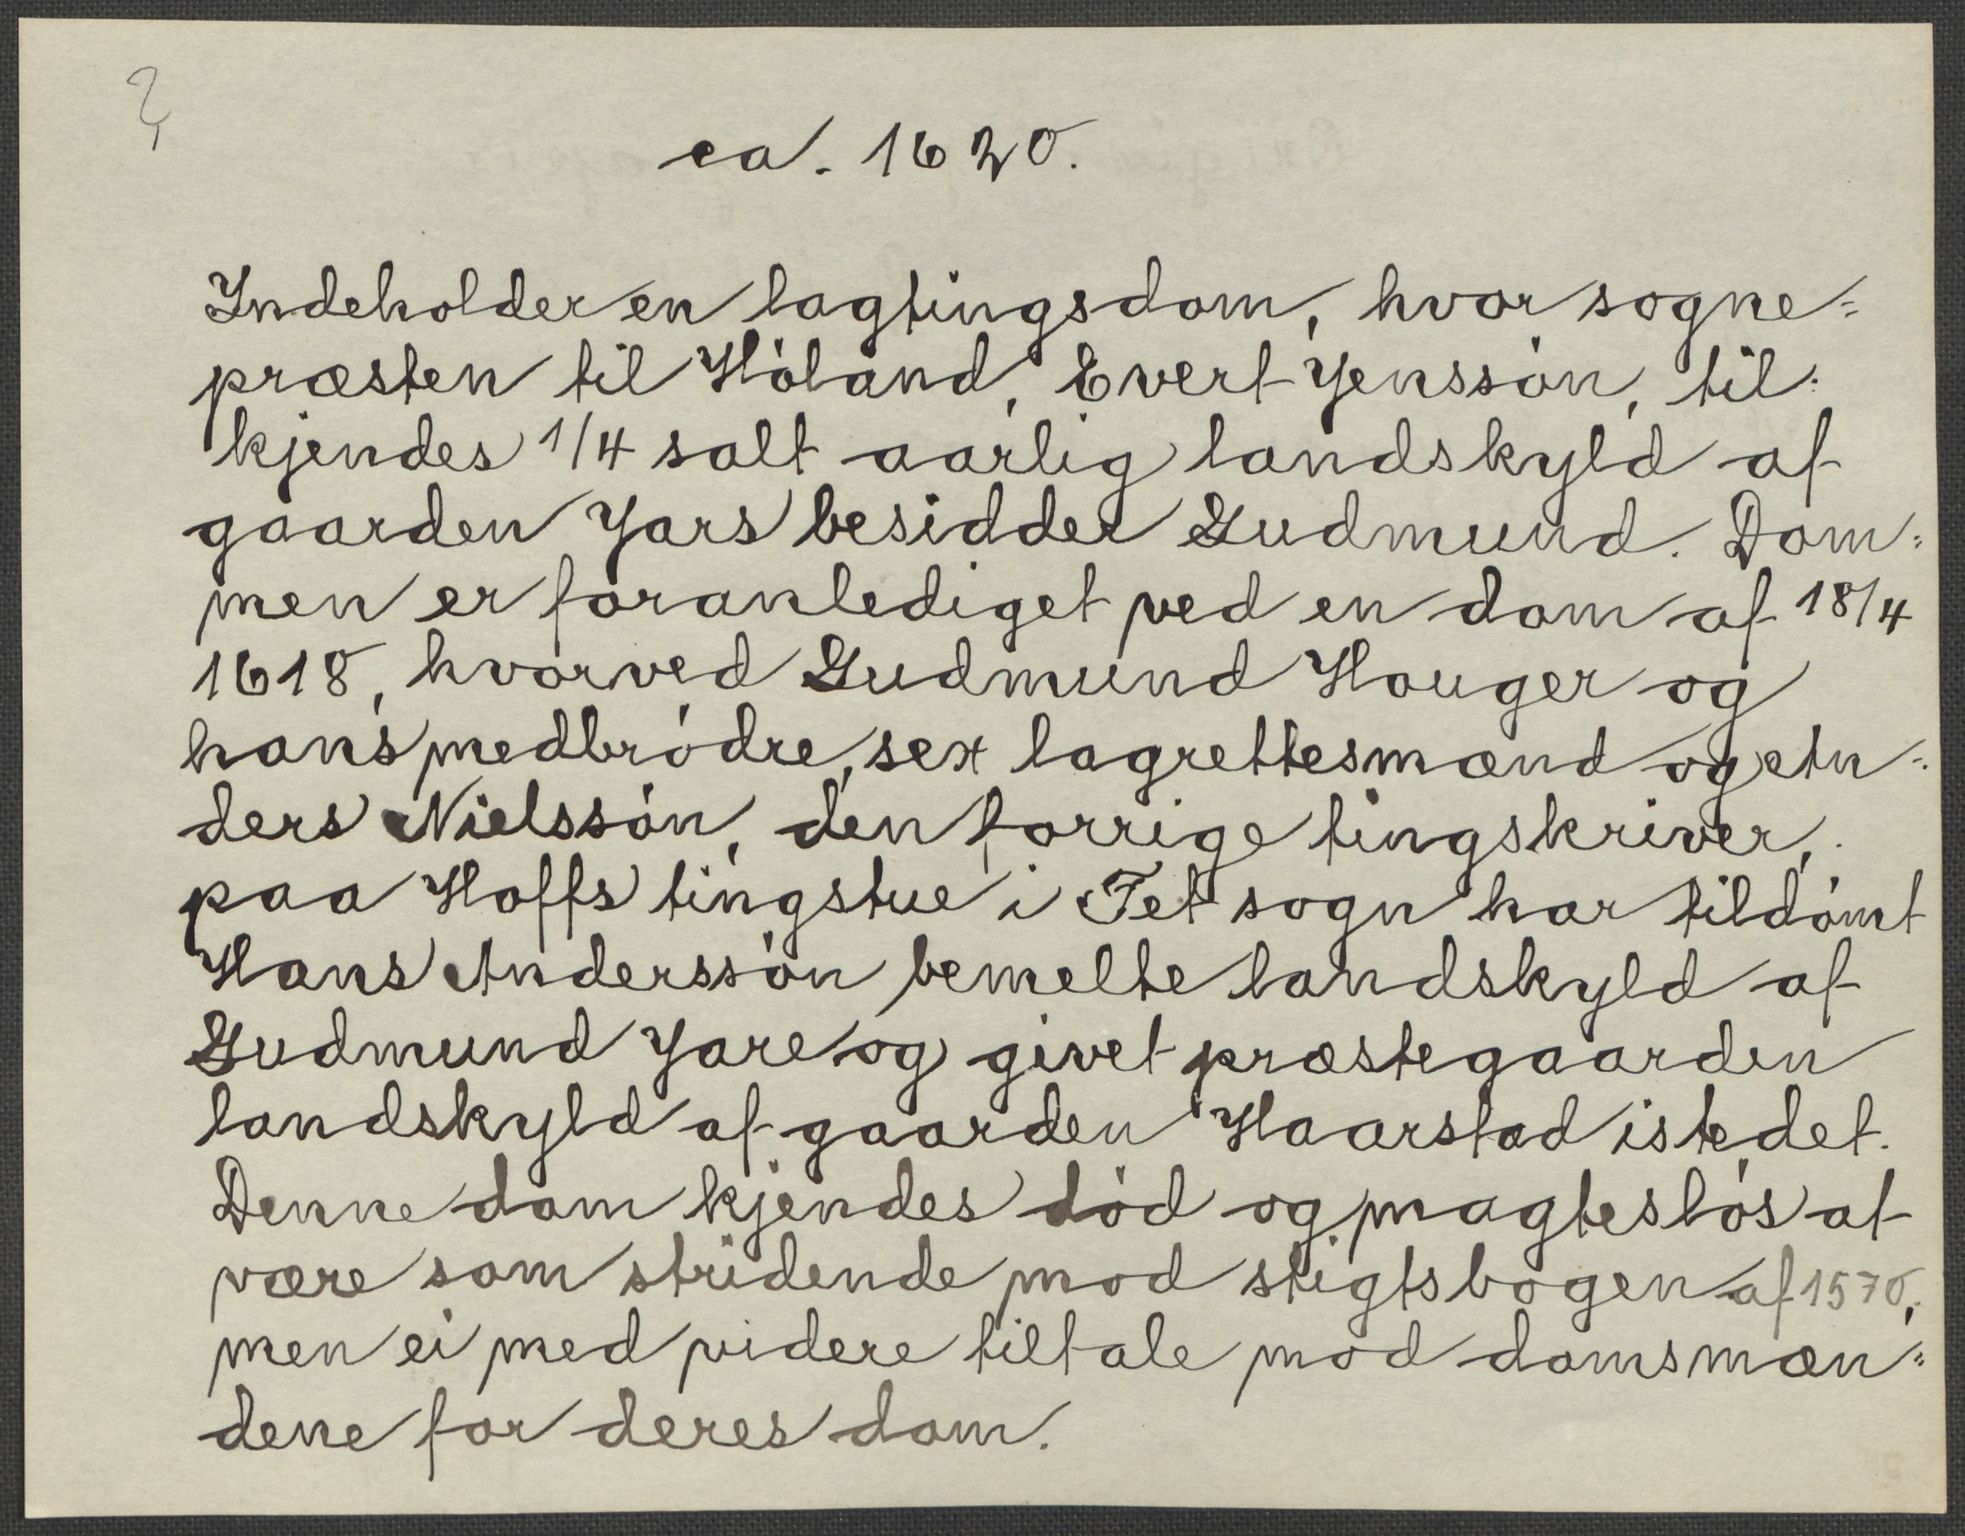 ca. 1620.
Indeholder en lagtingsdom, hvor sogne=
præsten til Hòland, Evert Jenssòn, til-
kjendes 1/4 salt aarlig landskyld af
gaarden Jars besidder Gudmund. Dom=
men er foranlediget ved en dom af 18/4
1618, hvorved Gudmund Houger og
hans medbròdre, sex lagrettesmænd og An-
ders Nielssòn, den forrige tingskriver,
paa Hoffs tingstue i Fet sogn har tildòmt
Hans Anderssòn bemelte landskyld af
Gudmund Jare og givet præstegaarden
landskyld af gaarden Haarstad istedet.
Denne dom kjendes dòd og magteslòs at
være som stridende mod stigtsbogen af 1570,
men ei med videre tiltale mod domsmæn=
dene for deres dom.